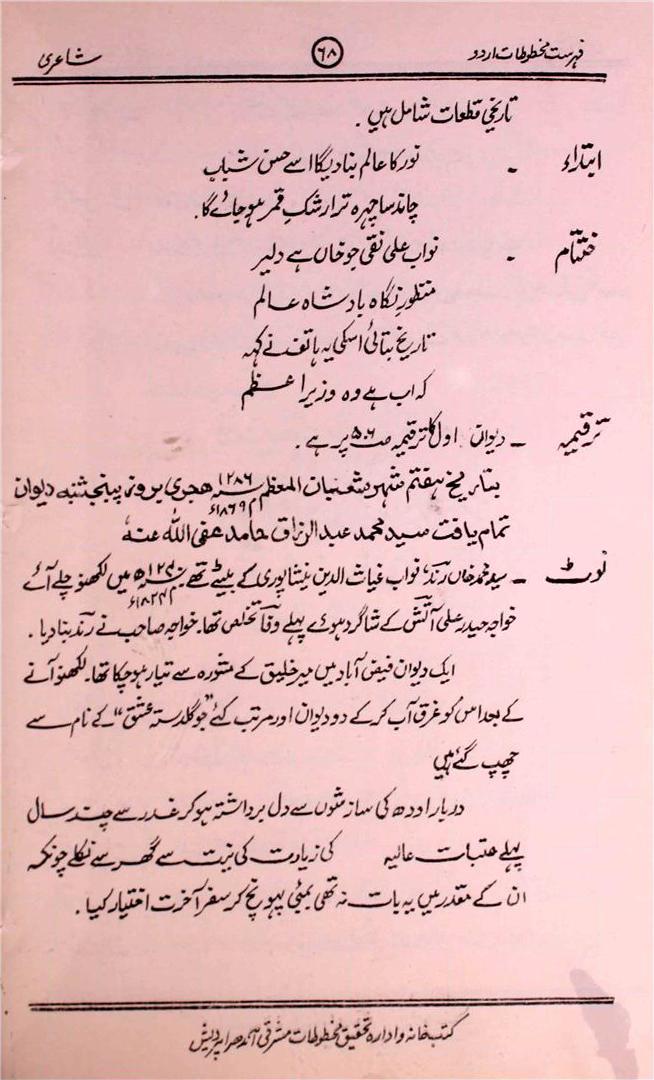 فہرست مخطوطات اردو ۶۸ شاعری
تاریخی قطعات شامل ہیں ۔
ابتداء ۔ نور کا عالم بنا دیگا اسے حسن شباب
چاند سا چہرہ ترا رشکِ قمر ہو جائے گا۔
ختتام ۔ نواب علی نقی جو خاں ہے دلیر
منظورِ نگاہ بادشاہ عالم
تاریخ بتائی اسکی یہ ہاتف نے کہہ
کہ اب ہے وہ وزیر اعظم
ترقیمہ ۔ دیوان اول کا ترقیمہ صـ ۵۰۶ پر ہے ۔
بتاریخ ہفتم شہر شعبان المعظم ۱۲۸۶ھ م ۱۸۶۹ء ہجری بروز پنجشنبہ دیوان
تمام یافت سید محمد عبدالرزاق حامد عفی اللہ عنہ
نوٹ ۔ سید محمد خاں رند، نواب غیاث الدین نیشاپوری کے بیٹے تھے ۱۲۴۰ھ م ۱۸۲۴ء میں لکھنو چلے آئے
خواجہ حیدر علی آتش کے شاگرد ہوئے پہلے وفا تخلص تھا۔ خواجہ صاحب نے رند بنا دیا ۔
ایک دیوان فیض آباد میں میر خلیق کے مشورہ سے تیار ہو چکا تھا۔ لکھنو آنے
کے بعد اس کو غرق آب کر کے دو دیوان اور مرتب کئے جو "گلدستہ عشق" کے نام سے
چھپ گئے ہیں
دربار اودھ کی سازشوں سے دل برداشتہ ہو کر غدر سے چند سال
پہلے عتبات عالیہ کی زیارت کی نیت سے گھر سے نکلے چونکہ
ان کے مقدر میں یہ بات نہ تھی بمبئی پہونچ کر سفر آخرت اختیار کیا ۔
کتب خانہ و ادارہ تحقیق مخطوطات مشرقی آندھرا پردیش